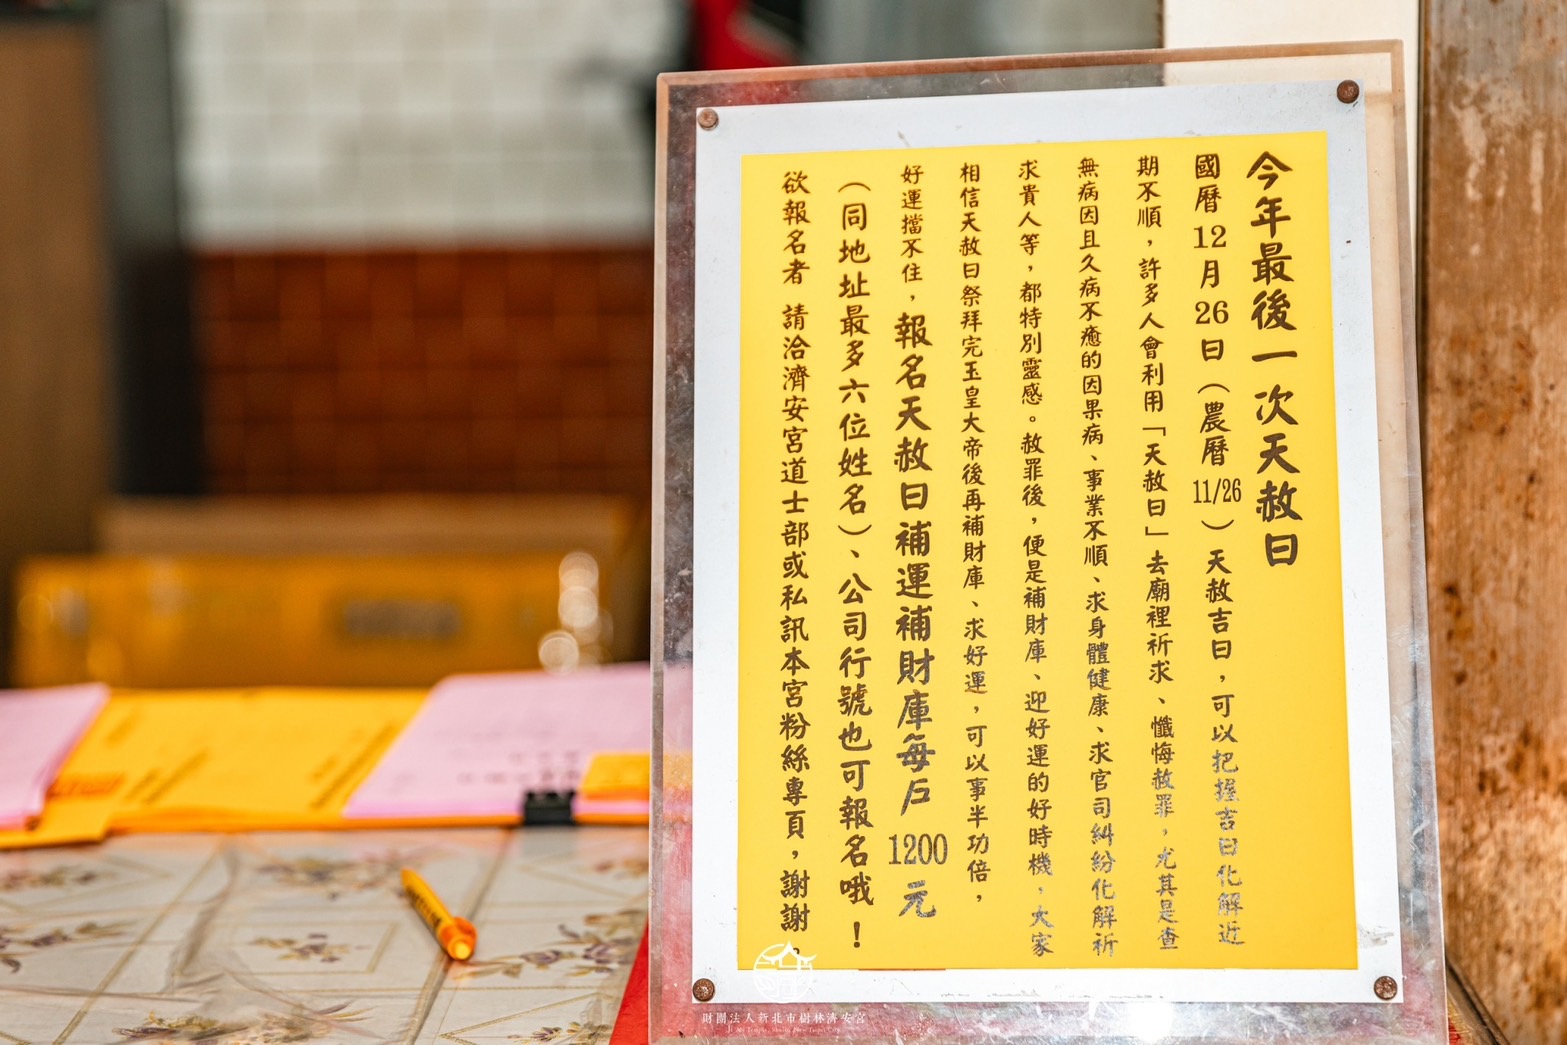 今年最後一次天赦日
國曆12月26日（農曆11/26）天赦吉日，可以把握吉日化解近
期不順，許多人會利用「天赦日」去廟裡祈求、懺悔赦罪，尤其是查
無病因且久病不癒的因果病、事業不順、求身體健康、求官司糾紛化解祈
求貴人等，都特別靈感。赦罪後，便是補財庫、迎好運的好時機，大家
相信天赦日祭拜完玉皇大帝後再補財庫、求好運，可以事半功倍，
好運擋不住，報名天赦日補運補財庫每戶1200元
（同地址最多六位姓名）、公司行號也可報名哦！
欲報名者 請洽濟安宮道士部或私訊本宮粉絲專頁，謝謝。
財團法人新北市樹林濟安宮